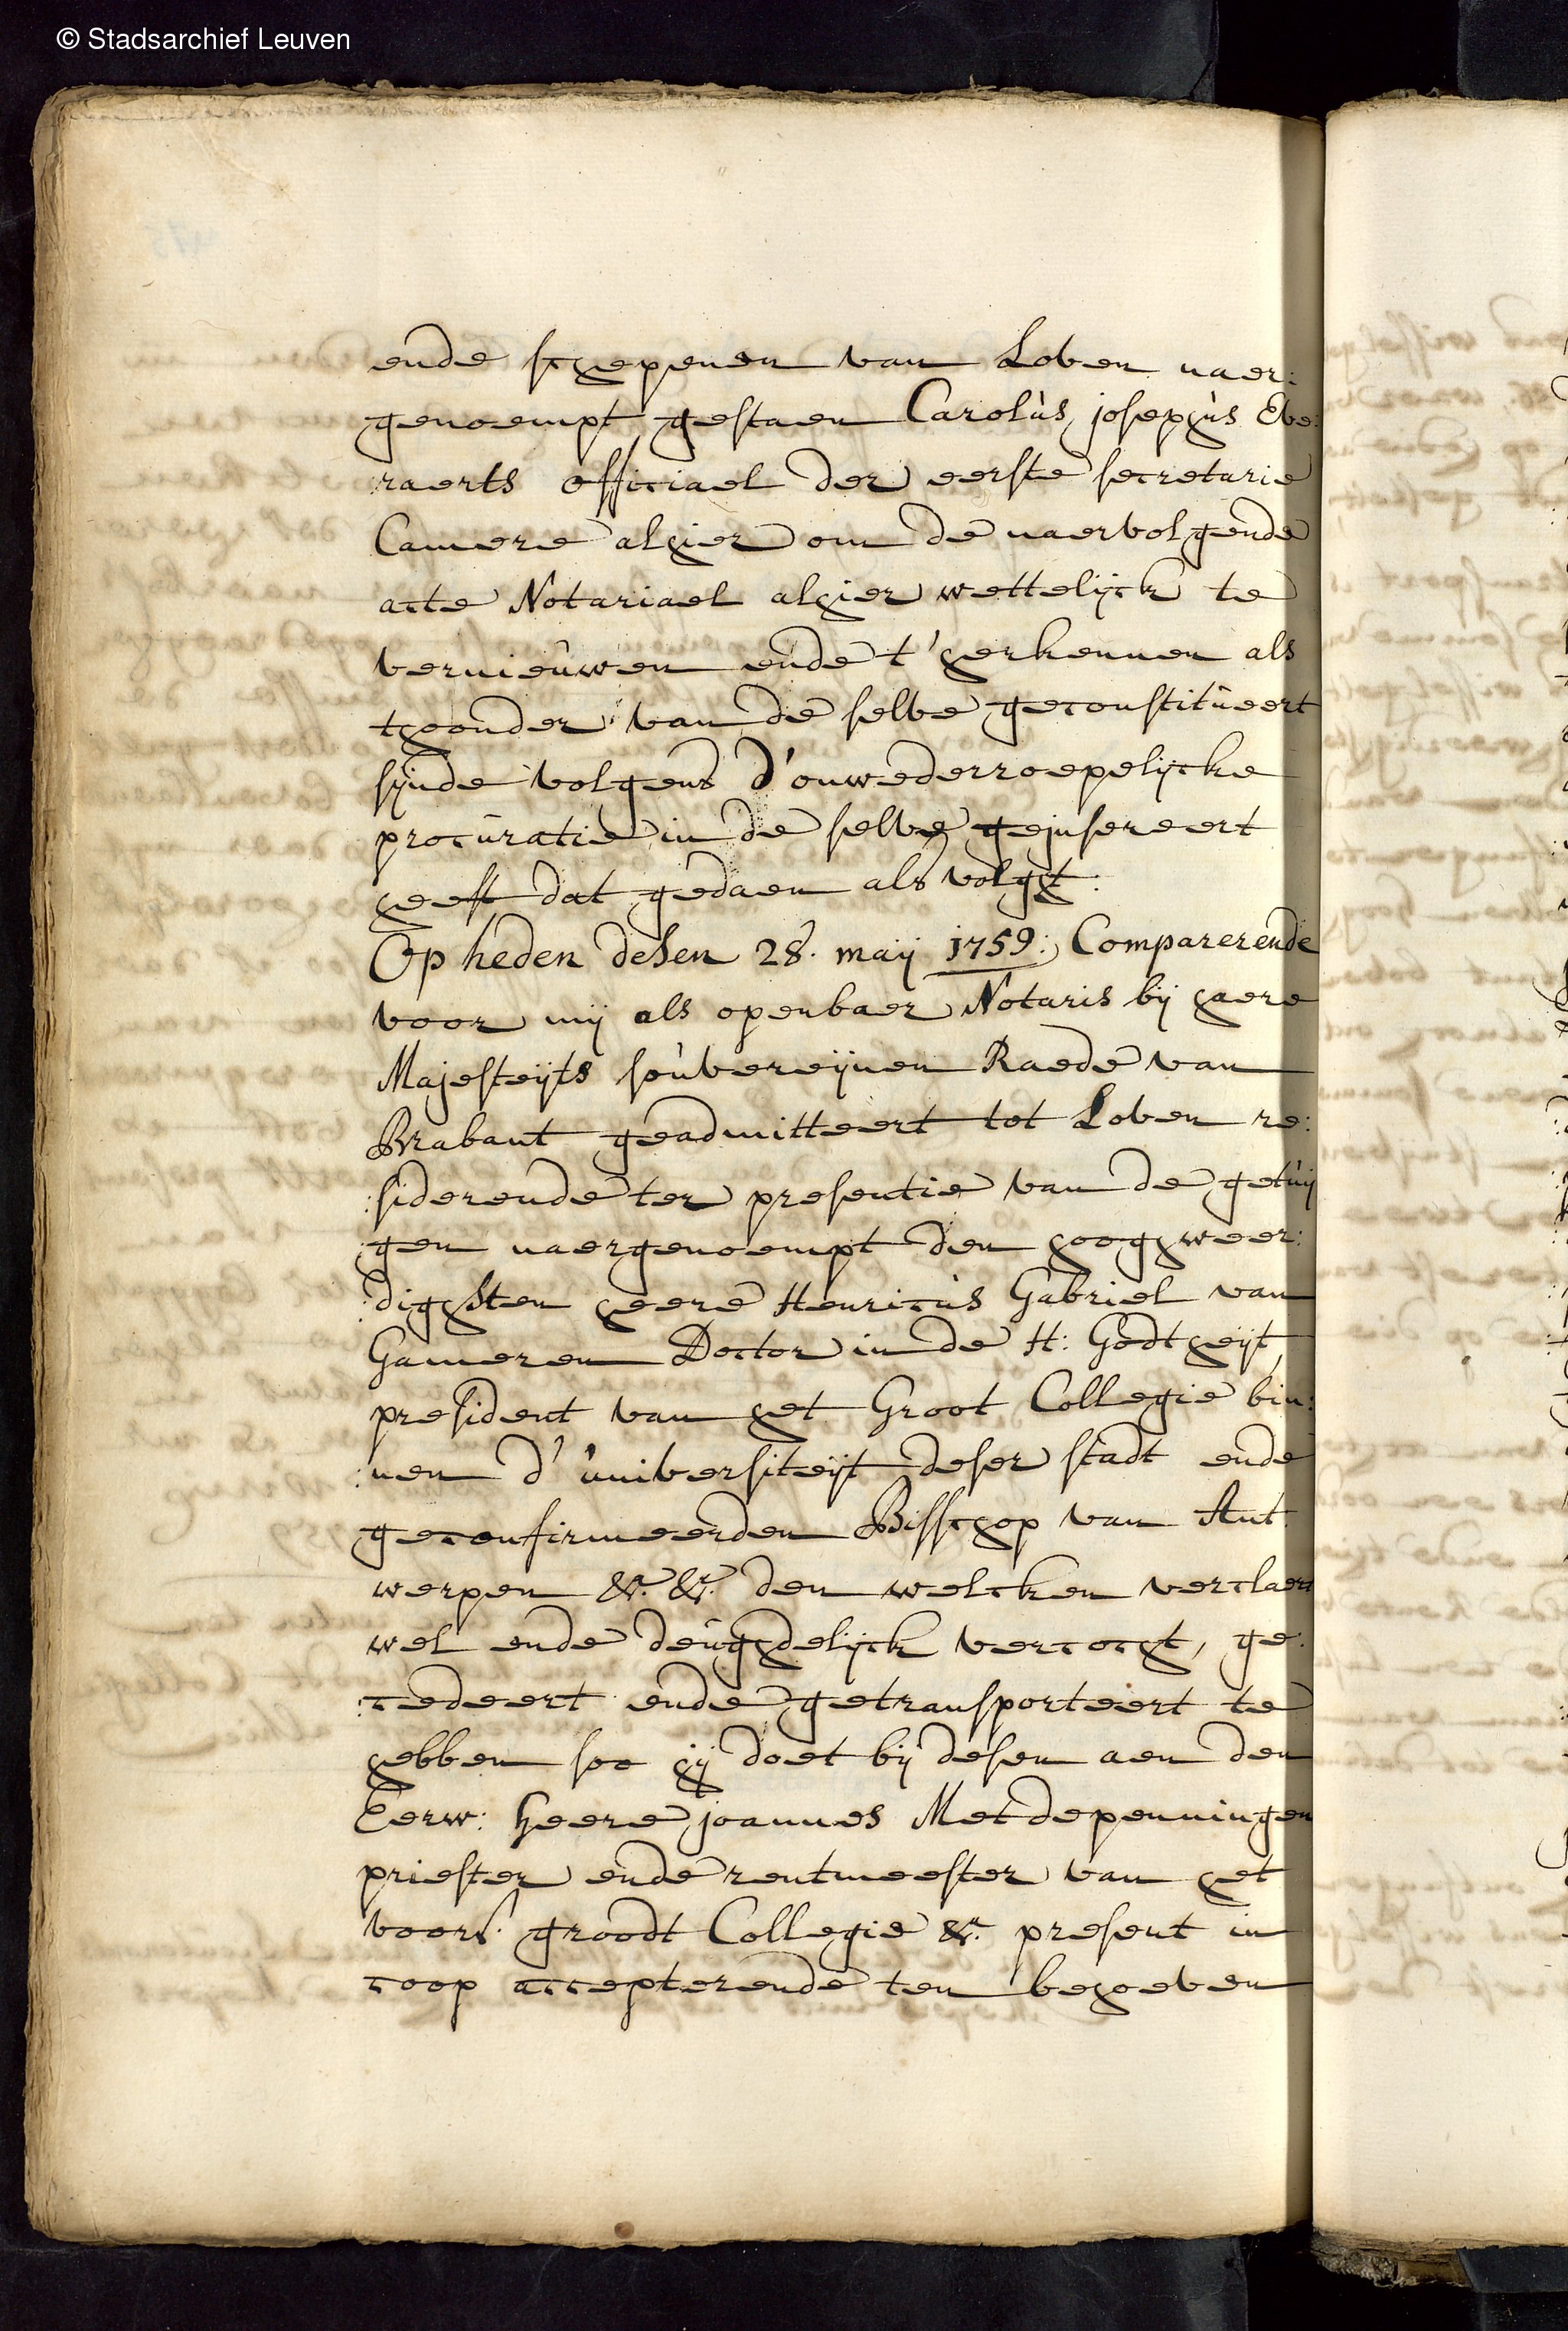 © Stadsarchief Leuven
ende schepenen van Loven naer:
genoempt gestaen Carolùs josephùs Eve:
raerts officiael der eerste secretarie
Camere alhier om de naervolgende
acte Notariael alhier wettelijck te
vernieùwen ende t'herkennen als
thoonder van de selve geconstitùeert
sijnde volgens d'onwederroepelijcke
procùratie in de selve geinsereert
heeft dat gedaen als volght:
Op heden desen 28. maij 1759: Comparerende
voor mij als openbaer Notaris bij haere
Majesteijts soùvereijnen Raede van
Brabant geadmitteert tot Loven re:
:siderende ter presentie van de getùij
:gen naergenoempt den hooghweer:
:dighsten heere Henricùs Gabriel van
Gameren Doctor in de H: Godtheijt,
president van het Groot Collegie bin:
:nen d'ùniversiteijt deser stadt ende
geconfirmeerden Bisschop van Ant
werpen &a. &a. den welcken verclaert
wel ende deùghdelijck vercocht, ge:
:cedeert ende getransporteert te
hebben soo hij doet bij desen aen den
Eerw: heere joannes Metdepenningen
priester ende rentmeester van het
voors. groodt Collegie &a. present in
coop accepterende ten behoeven